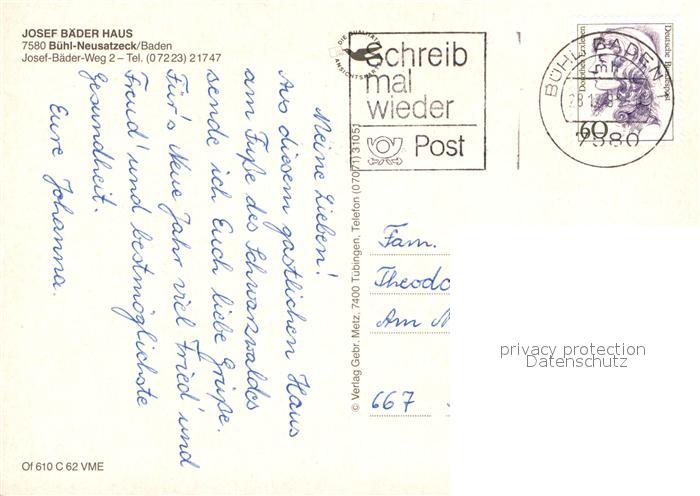 JOSEF BÄDER HAUS
7580 Bühl-Neusatzeck/Baden
Josef-Bäder-Weg 2 – Tel. (07223) 21747
Meine Lieben!
Aus diesem gastlichen Haus
am Fuße des Schwarzwaldes
sende ich Euch liebe Grüße.
Für's Neue Jahr viel Fried' und
Freud' und bestmöglichste
Gesundheit.
Eure Johanna.
Of 610 C 62 VME
© Verlag Gebr. Metz, 7400 Tübingen, Telefon (07071) 31051
DIE QUALITÄTS
ANSICHTSKARTE
Schreib
mal
wieder
Post
BÜHL, BADEN
7580
Dorothea Erxleben
Deutsche Bundespost
60
Fam.
Theodo
Am
667
privacy protection
Datenschutz